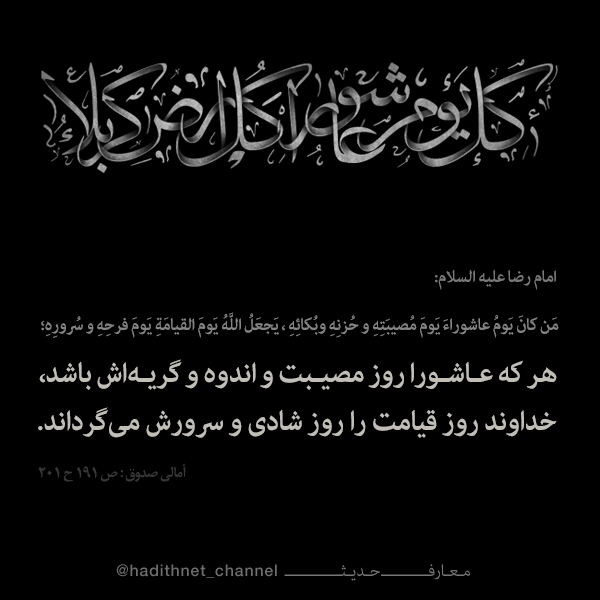 کل یوم عاشورا کل ارض کربلاء
امام رضا علیه السلام:
مَن کانَ یَومُ عاشوراءَ یَومَ مُصیبَتِهِ و حُزنِهِ وبُکائِهِ ، یَجعَلُ اللَّهُ یَومَ القیامَةِ یَومَ فرحِهِ و سُرورِهِ؛
هر که عـاشـورا روز مصیـبت و اندوه و گریـه‌اش باشد،
خداوند روز قیامت را روز شادی و سرورش می‌گرداند.
أمالی صدوق : ص ۱۹۱ ح ۲۰۱
معارف حدیث @hadithnet_channel